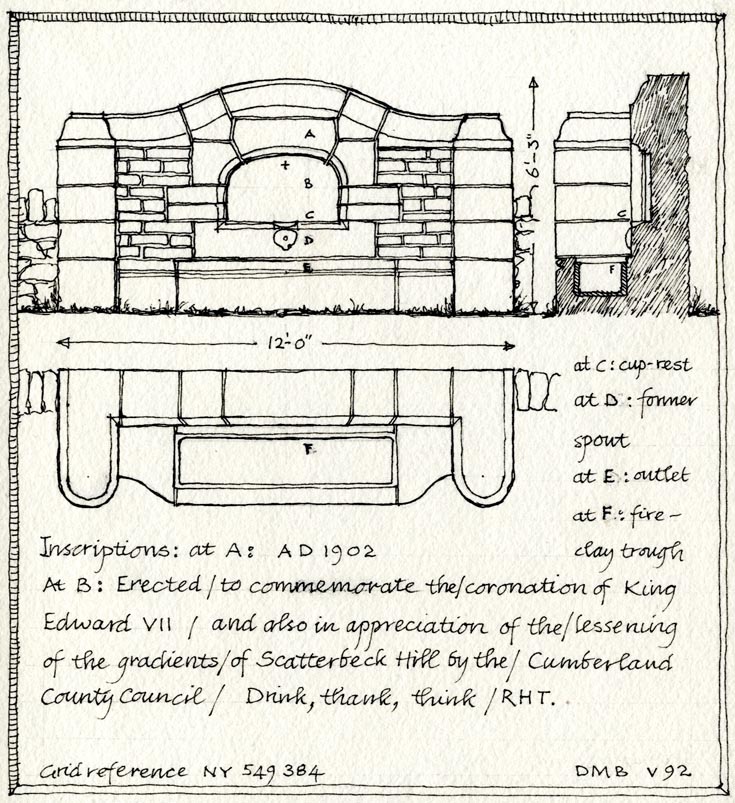 A
B
C
D
E
6'-3"
C
F
12'-0"
F
at C: cup-rest
at D: former
spout
at E: outlet
at F: fire-
clay trough
Inscriptions: at A: AD 1902
At B: Erected / to commemorate the/coronation of King
Edward VII / and also in appreciation of the/lessening
of the gradients/of Scatterbeck Hill by the/ Cumberland
County Council / Drink, thank, think / RHT.
Grid reference NY 549 384
DMB V 92